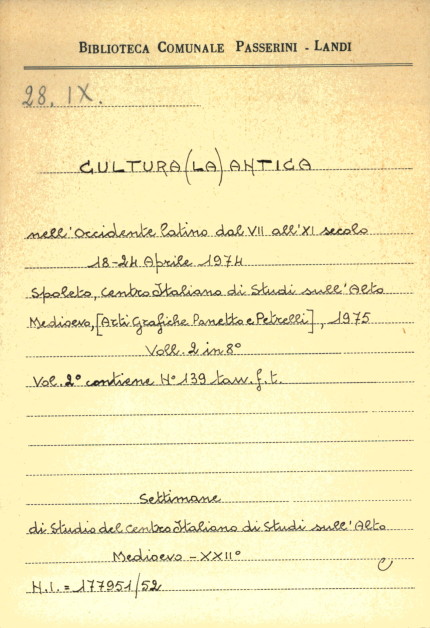 BIBLIOTECA COMUNALE PASSERINI - LANDI
28. IX.
CULTURA (LA) ANTICA
nell'Occidente latino dal VII all'XI secolo
18-24 Aprile 1974
Spoleto, Centro Italiano di Studi sull'Alto
Medioevo, [Arti Grafiche Panetto e Petrelli], 1975
Voll. 2 in 8°
Vol. 2° contiene N° 139 tavv. f. t.
Settimane
di Studio del Centro Italiano di Studi sull'Alto
Medioevo - XXII°
N.I. = 177951/52